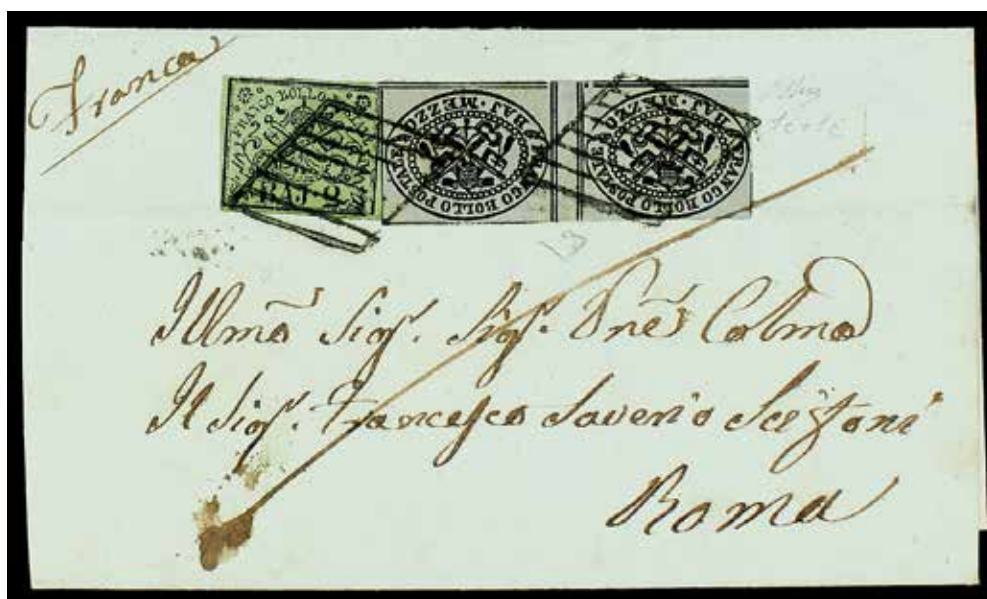 Franca
FRANCO BOLLO
BAJ 2
FRANCO BOLLO POSTALE BAJ · MEZZO
FRANCO BOLLO POSTALE BAJ · MEZZO
13
Illmo Sigr. Sigr. Pne Colmo
Il Sigr. Francesco Saverio
Roma